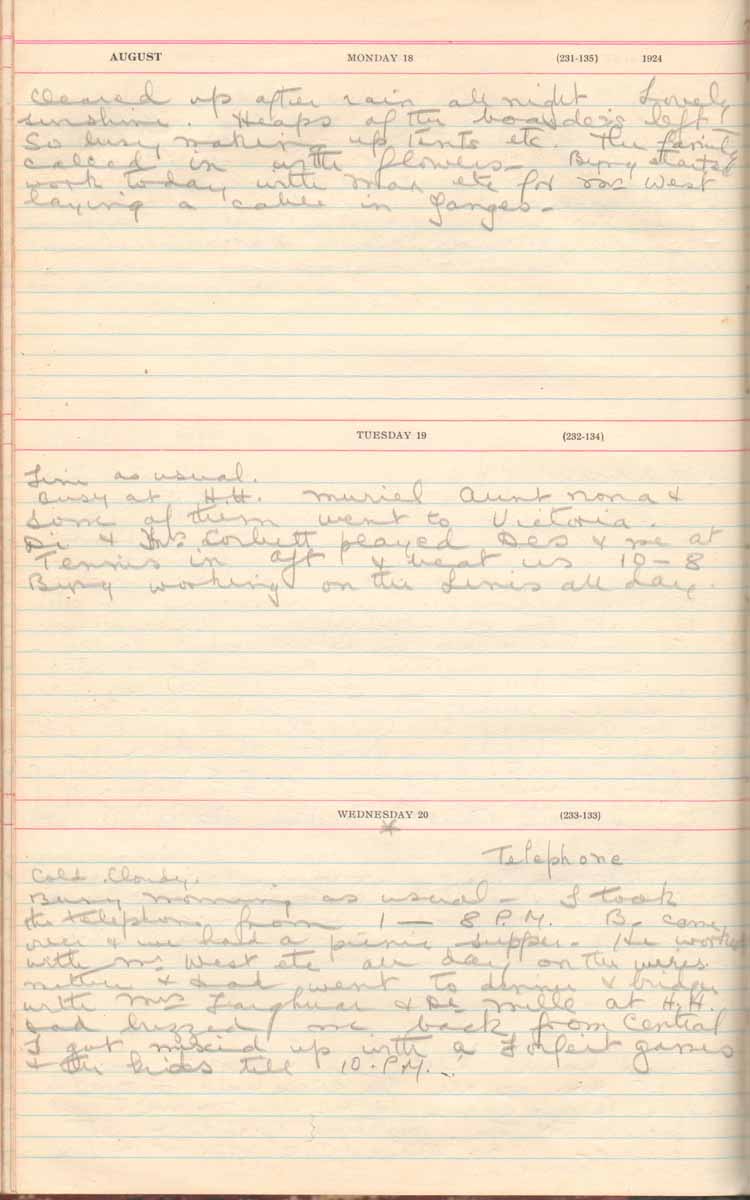 AUGUST MONDAY 18 (231-135) 1924
Cleared up after rain all night Lovely
sunshine. Heaps of the boarders left
So busy making up Tents etc. The family
called in with flowers - started
work today with Max etc for Mr West
laying a cable in Ganges -
TUESDAY 19 (232-134)
as usual.
Busy at H.H. Muriel Aunt Nona &
Some of them went to Victoria.
Di & Corbett played Des & me at
Tennis in aft & beat us 10 - 8
working on the Lines all day
WEDNESDAY 20 (233-133)
Telephone
Cold Cloudy.
Busy morning as usual - I took
the telephone from 1 — 8 P.M. B. came
over & we had a picnic supper. He worked
with Mr West etc all day on the wires.
Mother & Dad went to dinner & bridge
with Mrs & De Mille at H.H.
Dad buzzed me back from Central
I got mixed up with a Forfeit games
& the kids till 10.P.M.